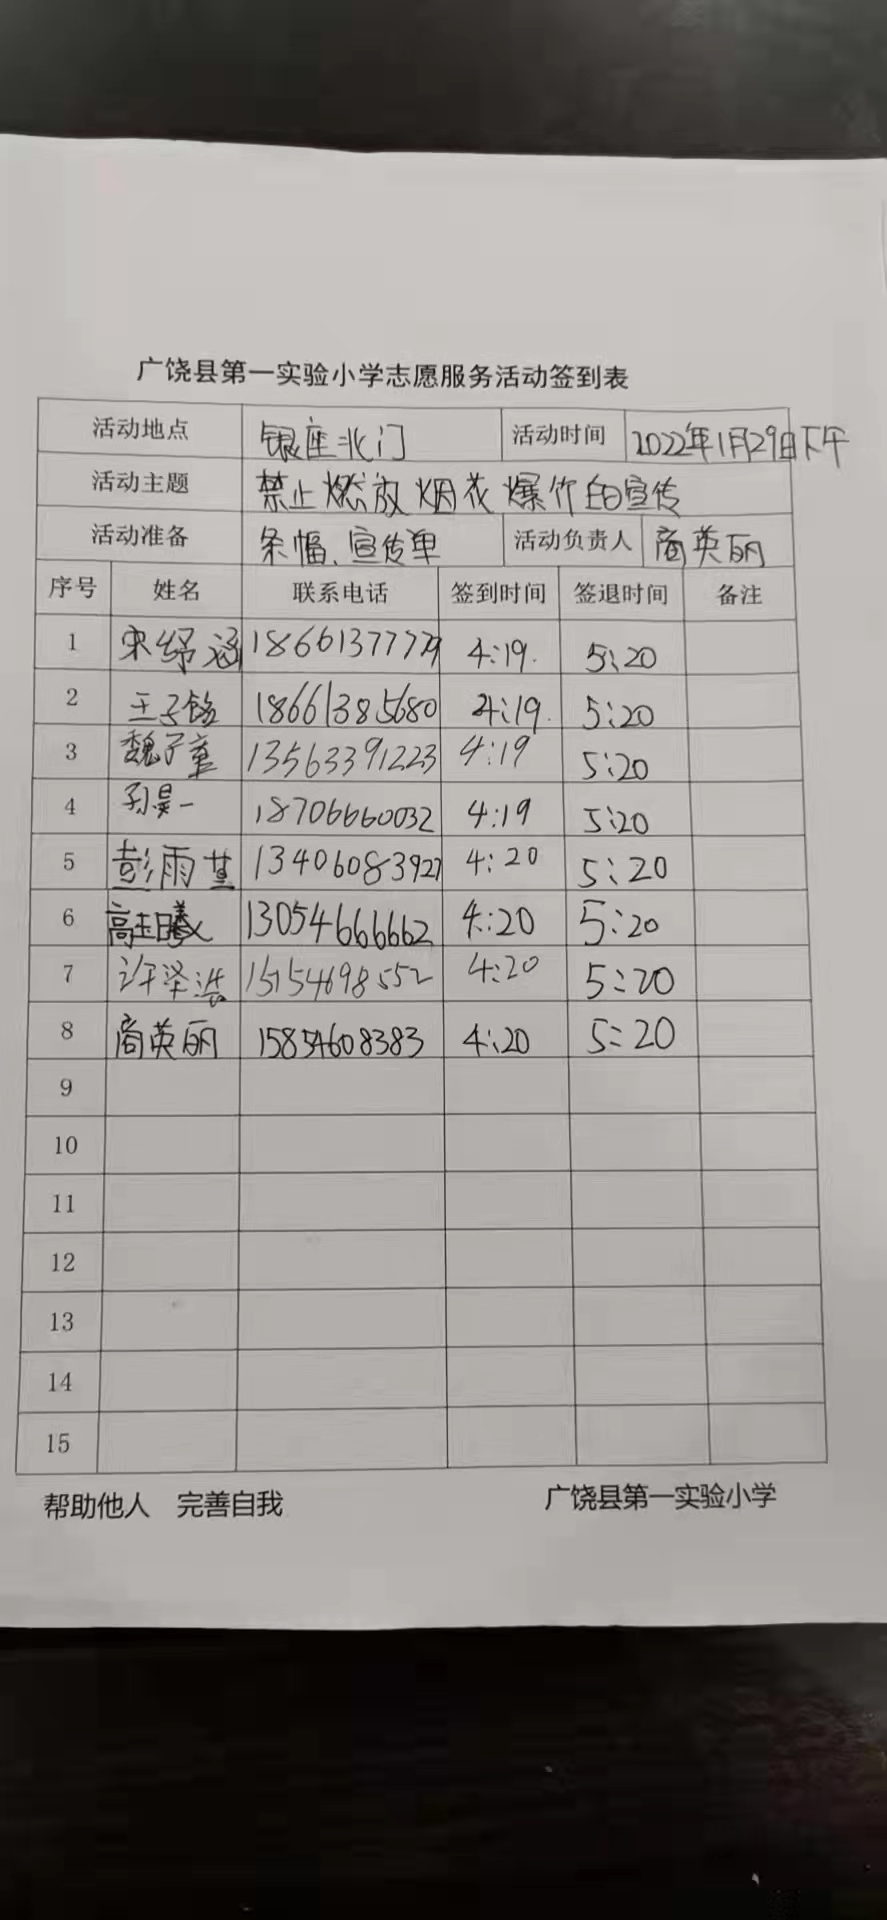 广饶县第一实验小学志愿服务活动签到表
活动地点 银座北门 活动时间 2022年1月29日下午
活动主题 禁止燃放烟花爆竹的宣传
活动准备 条幅、宣传单 活动负责人 商英丽
序号 姓名 联系电话 签到时间 签退时间 备注
1 宋纾涵 18661377779 4:19. 5:20
2 王子铭 18661385680 4:19. 5:20
3 魏子童 13563391223 4:19 5:20
4 孙昊一 18706660032 4:19 5:20
5 彭雨堇 13406083927 4:20 5:20
6 高钰曦 13054666662 4:20 5:20
7 许泽洪 15154698552 4:20 5:20
8 商英丽 15854608383 4:20 5:20
9
10
11
12
13
14
15
帮助他人 完善自我 广饶县第一实验小学